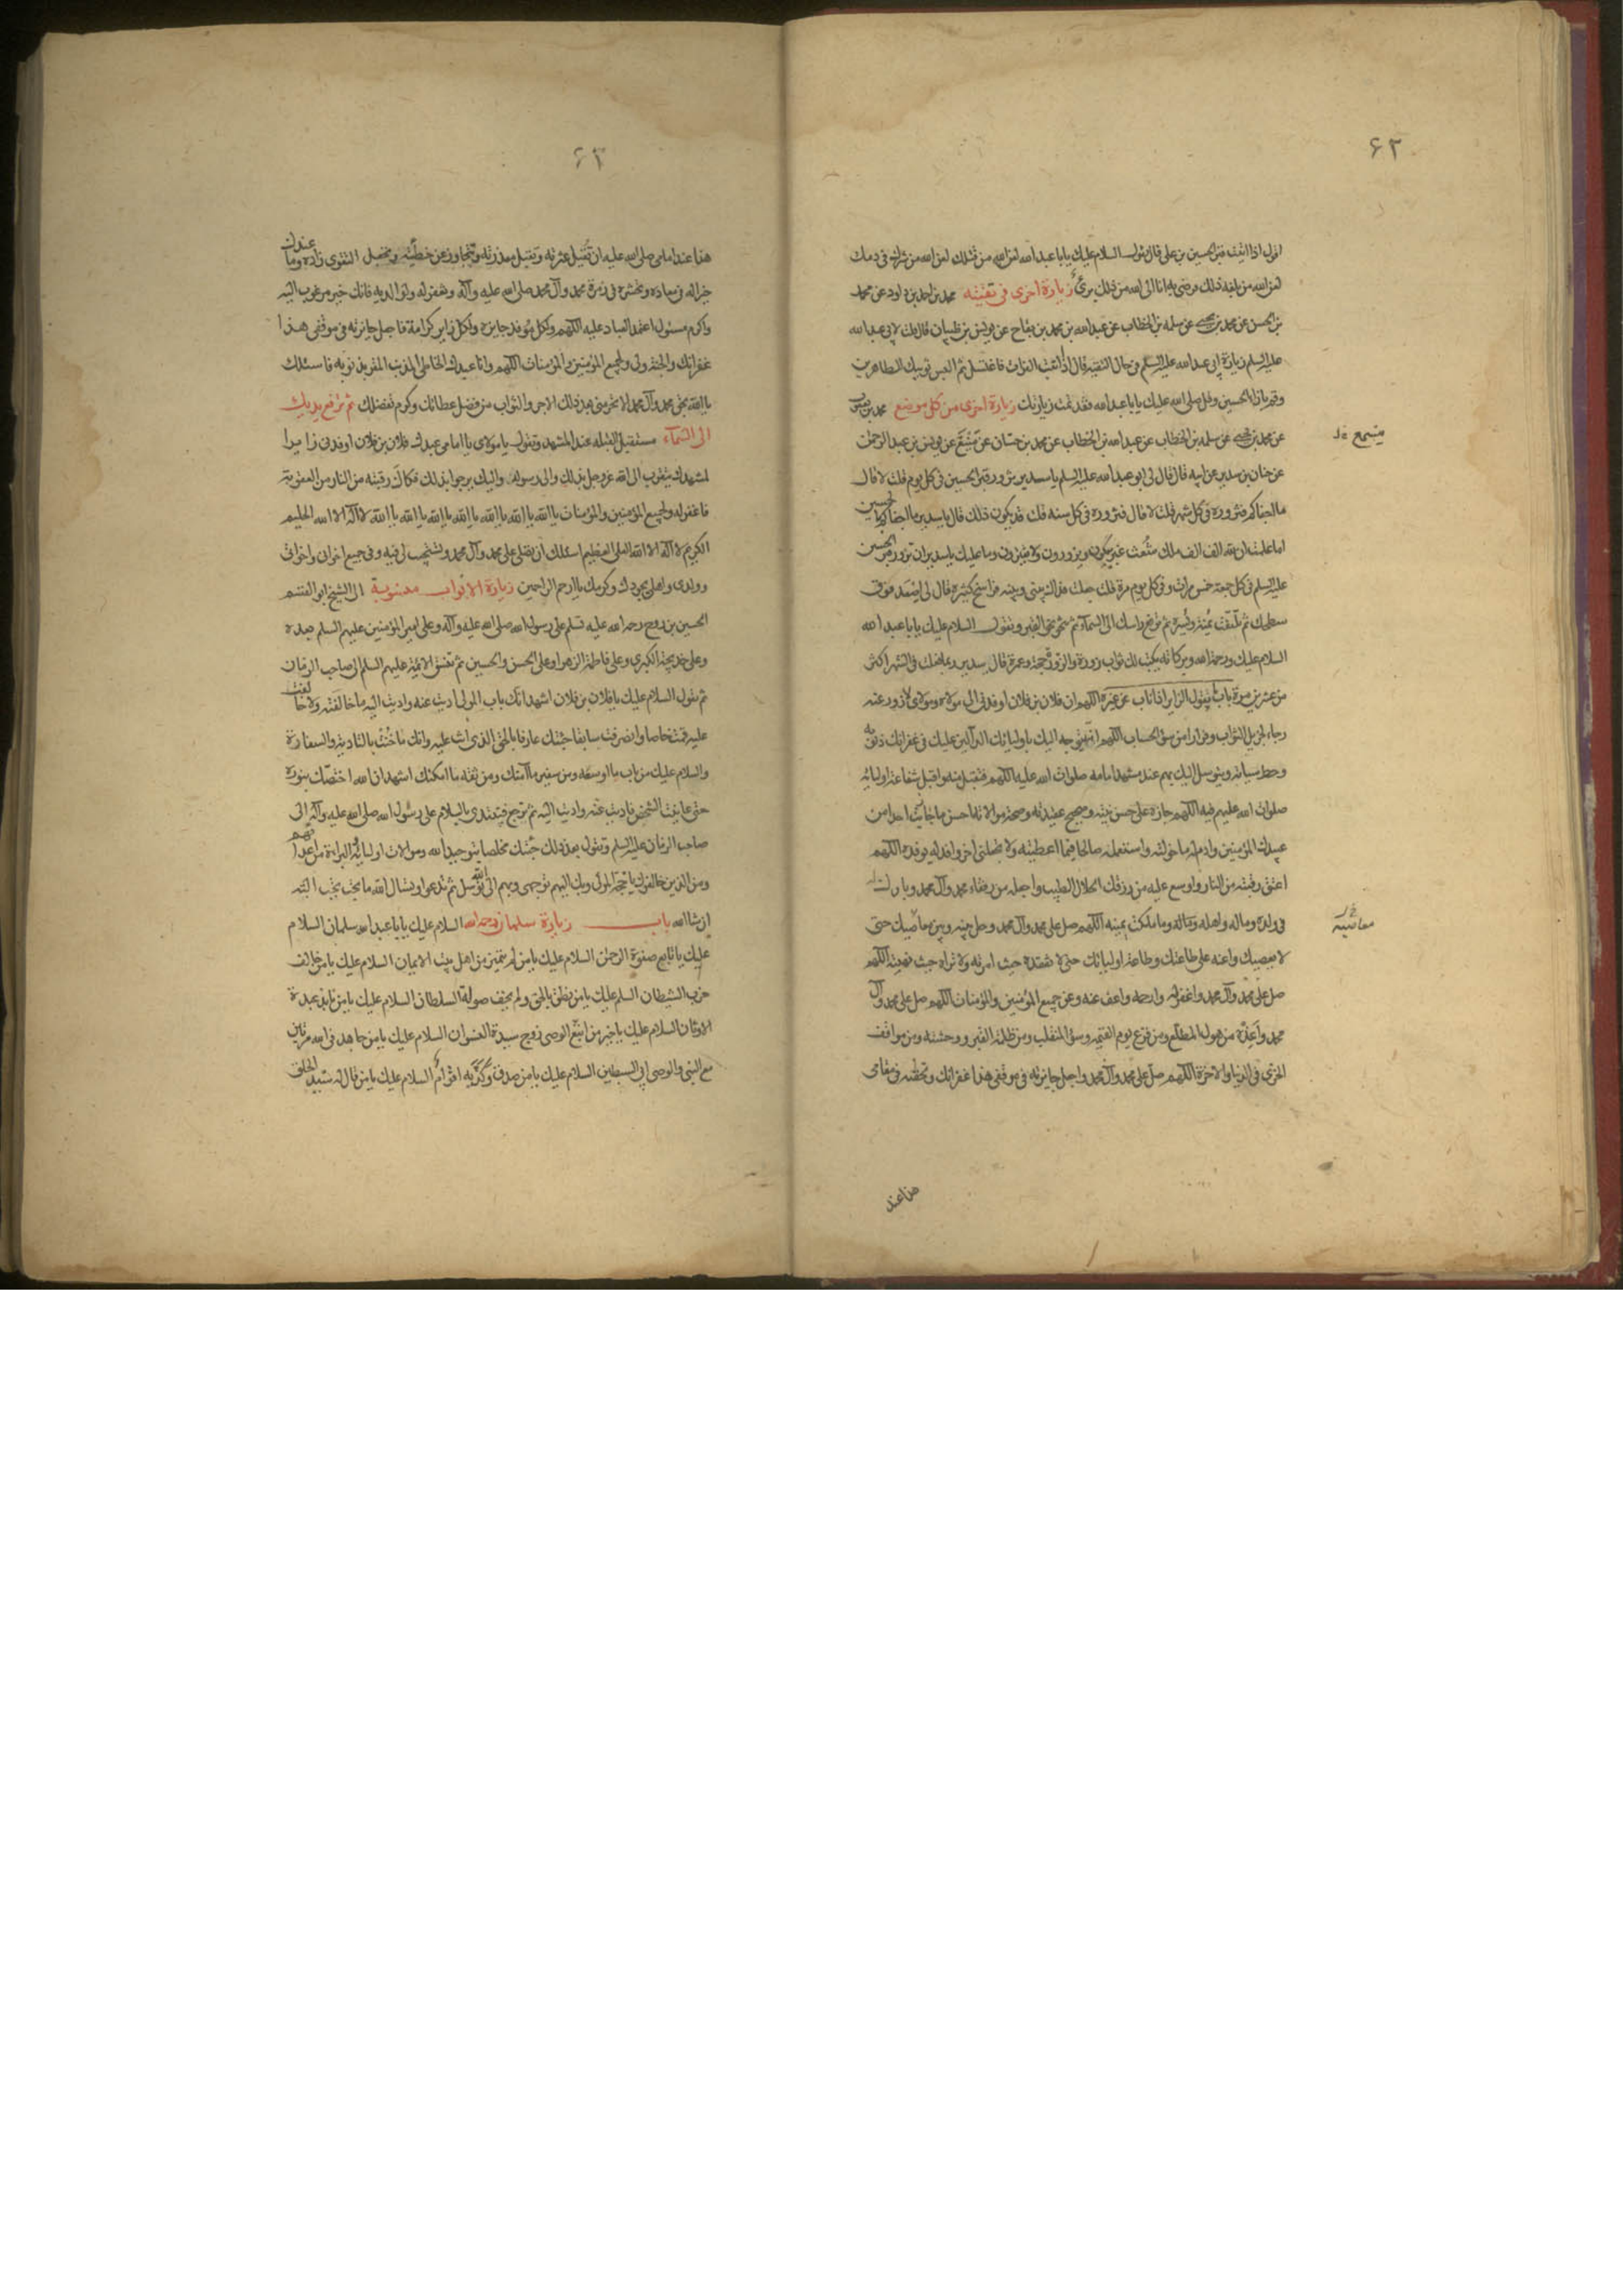 ۶۲
اقول اذا اتيت قبر الحسين بن علی قال تقول السلام عليك يا با عبد الله لعن الله من قتلك لعن الله من شرك فى دمك
لعن الله من بلغه ذلك فرضى به انا الى الله من ذلك برئ زيارة اخرى فى تقيته محمد بن احمد بن داود عن محمد
بن الحسن عن محمد بن يحيى عن سلمه بن الخطاب عن عبد الله بن محمد بن عن يونس بن ظبيان قال قلت لابى عبد الله
عليه السلم زيارة ابى عبد الله عليه السلم فى حال التقيه قال اذا اتيت الفرات فاغتسل ثم البس ثوبيك الطاهرين
وقم بازا الحسين وقل صلى الله عليك يا با عبد الله فقد تمت زيارتك زيارة اخرى من كل موضع محمد بن
عن محمد بن يحيى عن سلمه بن الخطاب عن عبد الله بن الخطاب عن محمد بن عن منيع عن يونس بن عبد الرحمن
عن حنان بن سدير عن ابيه قال قال لى ابو عبد الله عليه السلم يا سدير تزور قبر الحسين فى كل يوم قلت لا قال
ما اجفاكم فتزوره فى كل شهر قلت لا قال فتزوره فى كل سنه قلت قد يكون ذلك قال يا سدير ما اجفاكم بالحسين
اما علمت ان لله الف الف ملك شعث غبر يبكون ويزورون ولا يفترون وما عليك يا سدير ان تزور قبر الحسين
عليه السلم فى كل جمعة خمس مرات وفى كل يوم مرة قلت جعلت فداك بينى وبينه فراسخ كثيرة قال لى اصعد فوق
سطحك ثم تلتفت يمنة ويسرة ثم ترفع راسك الى السماء ثم تنحو نحو القبر وتقول السلام عليك يا با عبد الله
السلام عليك ورحمة الله وبركاته يكتب لك ثواب زورة والزورة حجة وعمرة قال سدير فربما فعلت فى الشهر اكثر
من عشرين مرة باب ما يقول الزاير اذا ناب عن غيره اللهم ان فلان بن فلان اوفدنى الى مولاه ومولاى لازور عنه
رجاء لجزيل الثواب وفرارا من سوء الحساب اللهم انه يتوجه اليك باوليائك الدالين عليك فى غفرانك ذنوبه
وحط سياته ويتوسل اليك بهم عند مشهد امامه صلوات الله عليه اللهم فتقبل منه واقبل شفاعة اوليائه
صلوات الله عليهم فيه اللهم جازه على حسن نيته وصحيح عقيدته وصحة موالاته احسن ما جازيت احدا من
عبيدك المؤمنين وادم له ما خولته واستعمله صالحا فيما اعطيته ولا تجعلنى اخر وافد له يوفده اللهم
اعتق رقبته من النار واوسع عليه من رزقك الحلال الطيب واجعله من رفقاء محمد وآل محمد وبارك له
فى ولده وماله واهله وما ملكت يمينه اللهم صل على محمد وآل محمد وحل بينه وبين معاصيك حتى
لا يعصيك واعنه على طاعتك وطاعة اوليائك حتى لا تفقده حيث امرته ولا تراه حيث نهيته اللهم
صل على محمد وآل محمد واغفر له وارحمه واعف عنه وعن جميع المؤمنين والمؤمنات اللهم صل على محمد وآل
محمد واعذه من هول المطلع ومن فزع يوم القيمه وسوء المنقلب ومن ظلمة القبر ووحشته ومن مواقف
الخزى فى الدنيا والاخرة اللهم صل على محمد وآل محمد واجعل جايزته فى موقفى هذا غفرانك وتحفته فى مقامى
معاصيه
هذا عند
۶۳
هذا عند امامى صلى الله عليه ان تقيل عثرته وتقبل معذرته وتتجاوز عن خطيئته وتجعل التقوى زاده وما عندك
خيرا له فى معاده وتحشره فى زمرة محمد وآل محمد صلى الله عليه وآله وتغفر له ولوالديه فانك خير مرغوب اليه
واكرم مسئول اعتمد العباد عليه اللهم ولكل موفد جايزة ولكل زاير كرامة فاجعل جايزته فى موقفى هذا
غفرانك والجنة ولى ولجميع المؤمنين والمؤمنات اللهم وانا عبدك الخاطى المذنب المقر بذنوبه فاسئلك
يا الله بحق محمد وآل محمد لا تحرمنى بعد ذلك الاجر والثواب من فضل عطائك وكرم تفضلك ثم ترفع يديك
الى السماء مستقبل القبلة عند المشهد وتقول يا مولاى يا امامى عبدك فلان بن فلان اوفدنى زايرا
لمشهدك يتقرب الى الله عز وجل بذلك والى رسوله واليك يرجو بذلك فكاك رقبته من النار من العقوبة
فاغفر له ولجميع المؤمنين والمؤمنات يا الله يا الله يا الله يا الله يا الله يا الله يا الله لا اله الا الله الحليم
الكريم لا اله الا الله العلى العظيم اسئلك ان تصلى على محمد وآل محمد وتستجيب لى فيه وفى جميع اخوانى واخواتى
وولدى واهلى بجودك وكرمك يا ارحم الراحمين زيارة الابواب منسوبة الى الشيخ ابو القسم
الحسين بن روح رحمه الله عليه تسلم على رسول الله صلى الله عليه وآله وعلى امير المؤمنين عليهم السلم بعده
وعلى خديجة الكبرى وعلى فاطمة الزهرا وعلى الحسن والحسين ثم تنسق الائمة عليهم السلم الى صاحب الزمان
ثم تقول السلام عليك يا فلان بن فلان اشهد انك باب المولى اديت عنه واديت اليه ما خالفته ولا خالفت
عليه قمت خاصا وانصرفت سابقا جئتك عارفا بالحق الذى انت عليه وانك ما خنت بالتادية والسفارة
والسلام عليك من باب ما اوسعه ومن سفير ما آمنك ومن ثقة ما امكنك اشهد ان الله اختصك بنوره
حتى عاينت الشخص فاديت عنه واديت اليه ثم ترجع فتبتدى بالسلام على رسول الله صلى الله عليه وآله الى
صاحب الزمان عليه السلم وتقول بعد ذلك جئتك مخلصا بتوحيد الله وموالات اوليائه والبراءة من اعدائهم
ومن الذين خالفوك يا حجة المولى وبك اليهم توجهى وبهم الى الله توسلى ثم تدعو وتسئال الله ما تحب تجب اليه
ان شا الله باب زيارة سلمان رحمه الله السلام عليك يا با عبد الله سلمان السلام
عليك يا تابع صفوة الرحمن السلام عليك يا من لم يتميز من اهل بيت الايمان السلام عليك يا من خالف
حزب الشيطان السلم عليك يا من نطق بالحق ولم يخف صولة السلطان السلام عليك يا من نابذ عبدة
الاوثان السلام عليك يا خير من اتبع الوصى زوج سيدة النسوان السلام عليك يا من جاهد فى الله مرتين
مع النبى والوصى ابى السبطين السلام عليك يا من صدق وكذبه اقوام السلام عليك يا من قال له سيد الخلق